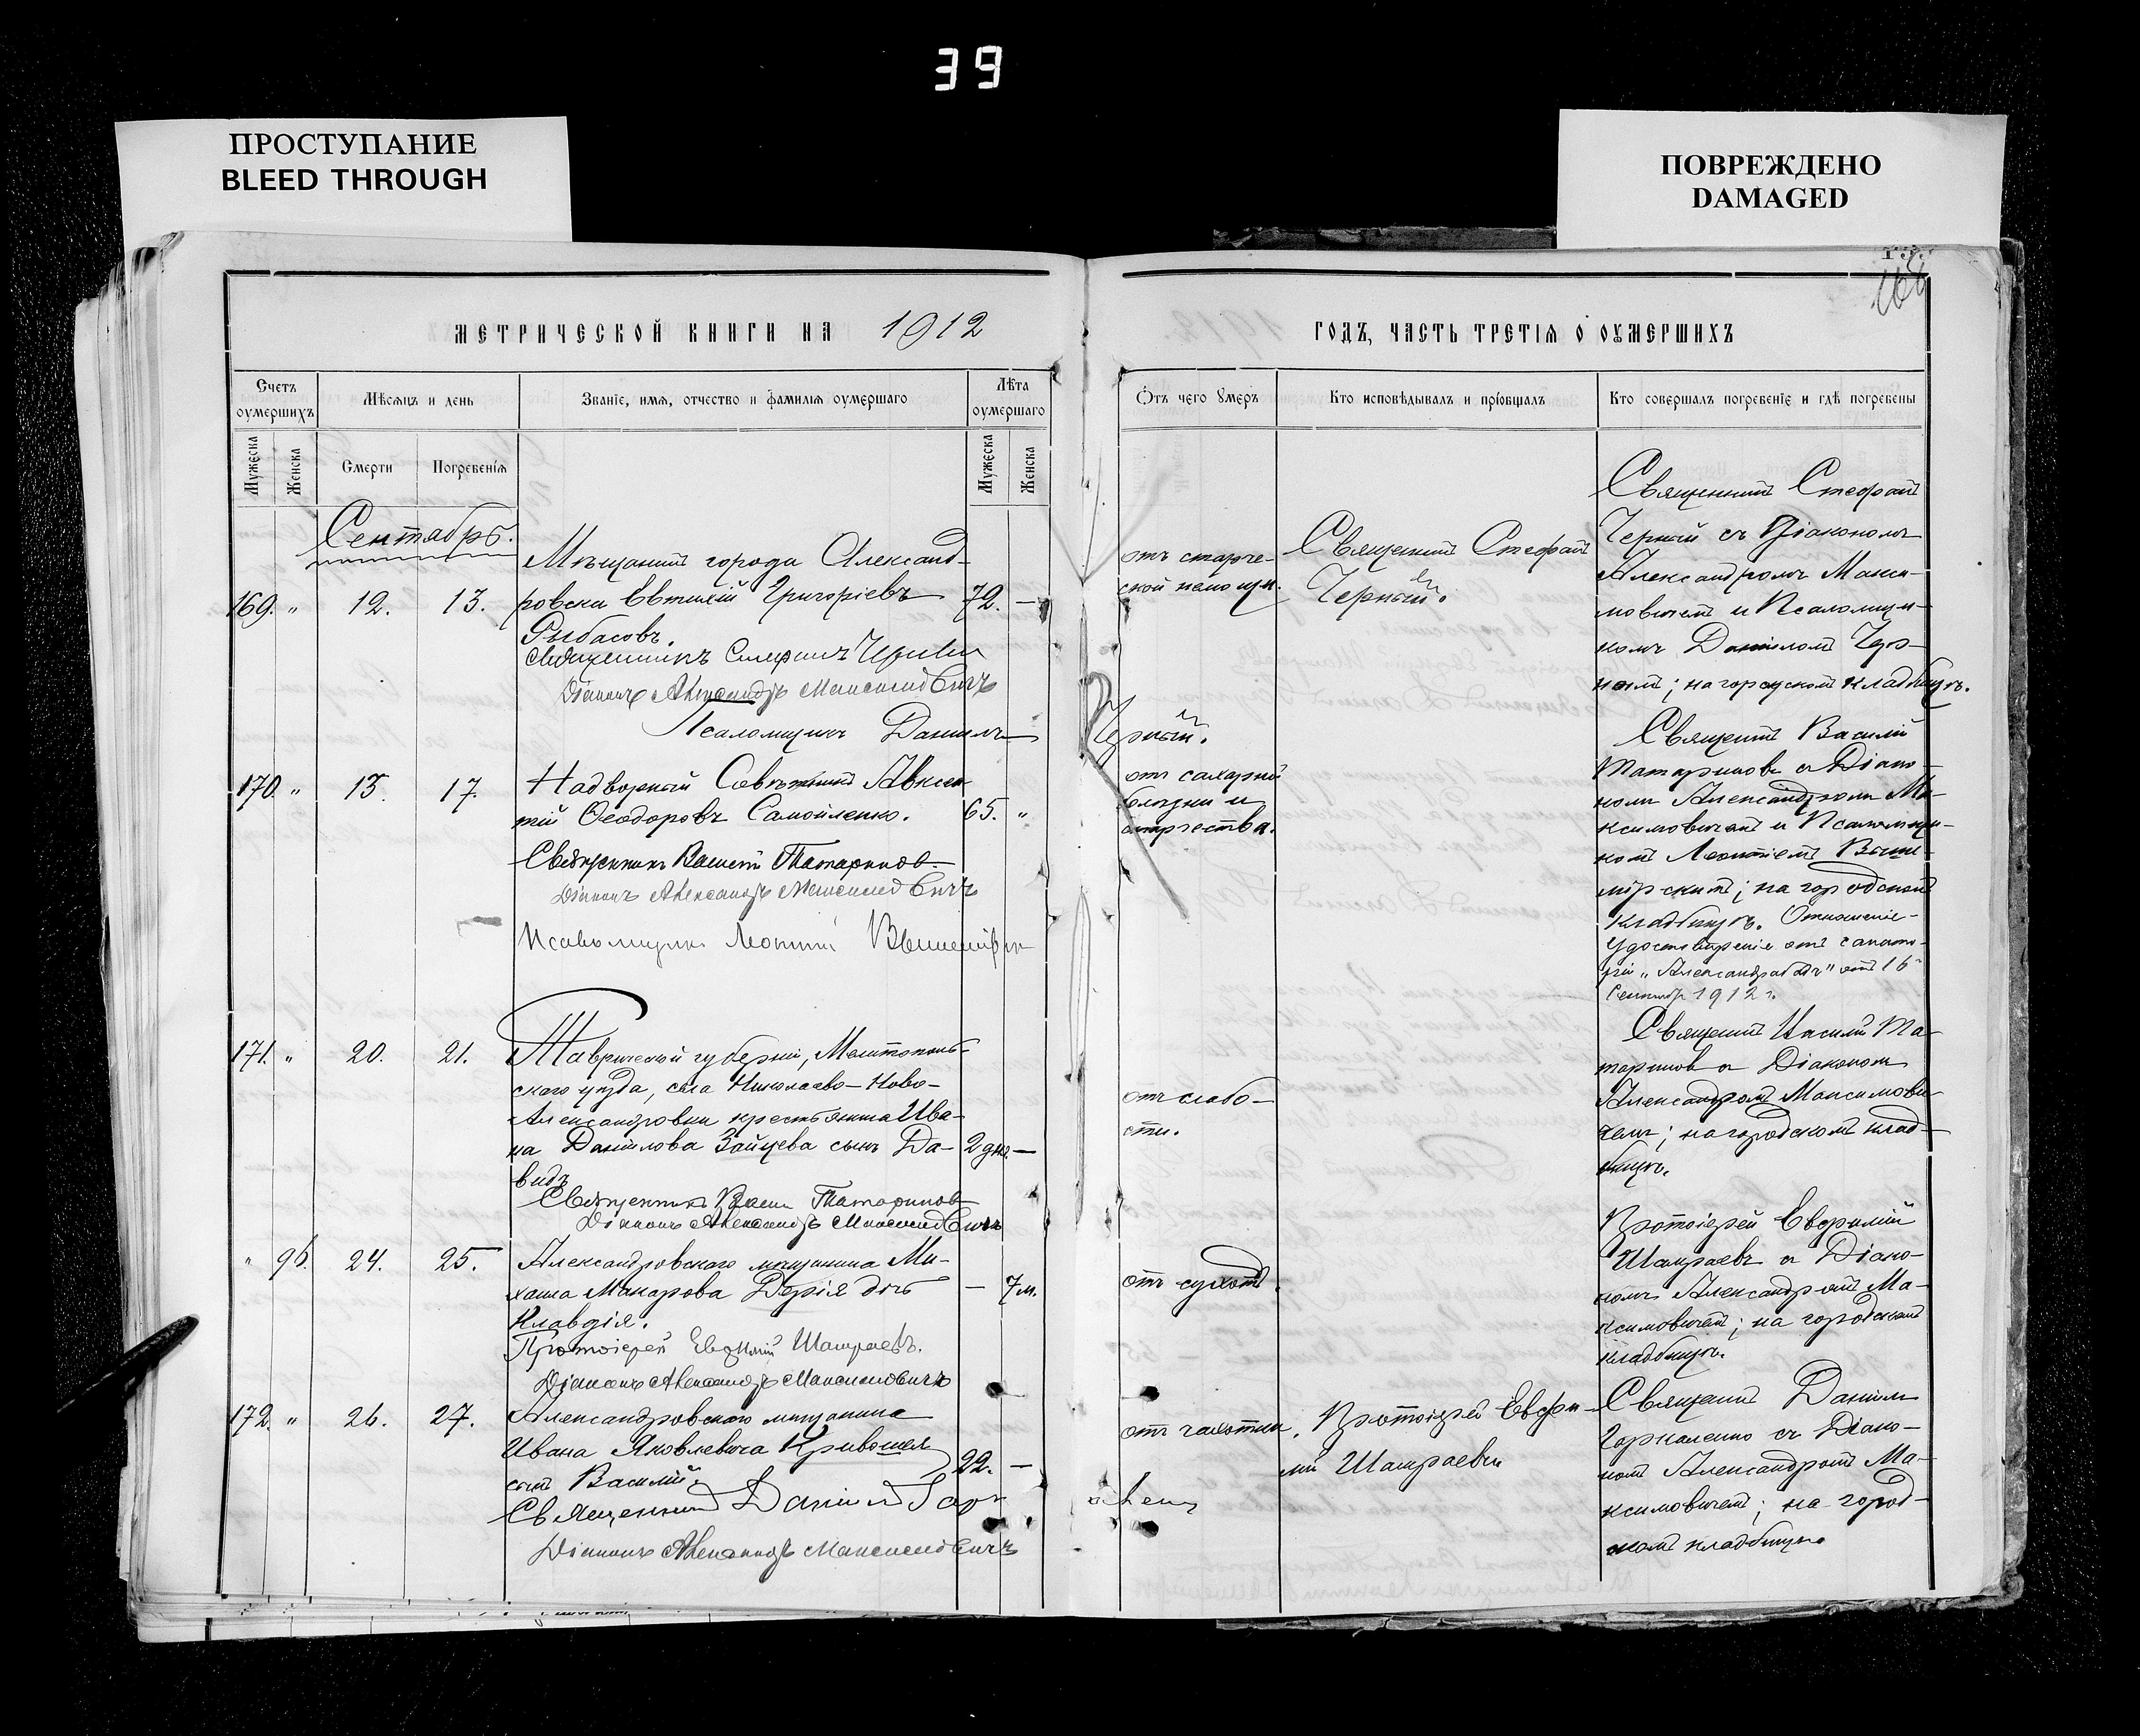 39
ПРОСТУПАНИЕ
BLEED THROUGH
ПОВРЕЖДЕНО
DAMAGED
МЕТРИЧЕСКОЙ КНИГИ НА 1912
ГОДЪ, ЧАСТЬ ТРЕТІЯ О ОУМЕРШИХЪ
Счетъ оумершихъ
Мѣсяцъ и день
Званіе, имя, отчество и фамилія оумершаго
Лѣта оумершаго
Мужеска
Женска
Смерти
Погребенія
Мужеска
Женска
Отъ чего умеръ
Кто исповѣдывалъ и пріобщалъ
Кто совершалъ погребеніе и гдѣ погребены
Сентябрь.
169. " 12. 13.
Мѣщанинъ города Александ-
ровска Евтихій Григоріевъ 72. —
Рыбасовъ.
Священникъ Стефанъ Черный
Діаконъ Александръ Максимовичъ
Псаломщикъ Даніилъ Черный.
отъ старче-
ской немощи.
Священникъ Стефанъ
Черный.
Священникъ Стефанъ
Черный съ Діакономъ
Александромъ Макси-
мовичемъ и Псаломщи-
комъ Даніиломъ Чер-
нымъ; на городскомъ кладбищѣ.
170. " 15. 17.
Надворный Совѣтникъ Авксен-
тій Ѳеодоровъ Самойленко. 65. "
Священникъ Василій Татариновъ
Діаконъ Александръ Максимовичъ
Псаломщикъ Леонтій
отъ сахарной
болѣзни и
старчества.
Священникъ Василій
Татариновъ съ Діако-
номъ Александромъ Ма-
ксимовичемъ и Псаломщи-
комъ Леонтіемъ Выше-
мірскимъ; на городскомъ
кладбищѣ. Отношеніе-
удостовѣреніе отъ санато-
ріи "Александрабадъ" отъ 16
Сентябр 1912 г.
171. " 20. 21.
Таврической губерніи, Мелитополь-
скаго уѣзда, села Николаево-Ново-
Александровки крестьянина Ива-
на Данилова Зайцева сынъ Да- 2 дня. —
видъ
Священникъ Васил Татариновъ
Діаконъ Александръ Максимовичъ
отъ слабо-
сти.
Священникъ Василій Та-
тариновъ съ Діакономъ
Александромъ Максимови-
чемъ; на городскомъ клад-
бищѣ.
" 96. 24. 25.
Александровскаго мѣщанина Ми-
хаила Макарова Дерія дочь — 7 м.
Клавдія.
Протоіерей Евфимій Шамраевъ.
Діаконъ Александръ Максимовичъ
отъ сухотъ.
Протоіерей Евфимій
Шамраевъ съ Діако-
номъ Александромъ Ма-
ксимовичемъ; на городскомъ
кладбищѣ.
172. " 26. 27.
Александровскаго мѣщанина
Ивана Яковлевича Кривошея 22. —
сынъ Василій.
Священникъ Даніилъ
Діаконъ Александръ Максимовичъ
отъ чахотки.
Протоіерей Евфи-
мій Шамраевъ
Священникъ Даніилъ
съ Діако-
номъ Александромъ Ма-
ксимовичемъ; на город-
скомъ кладбищѣ